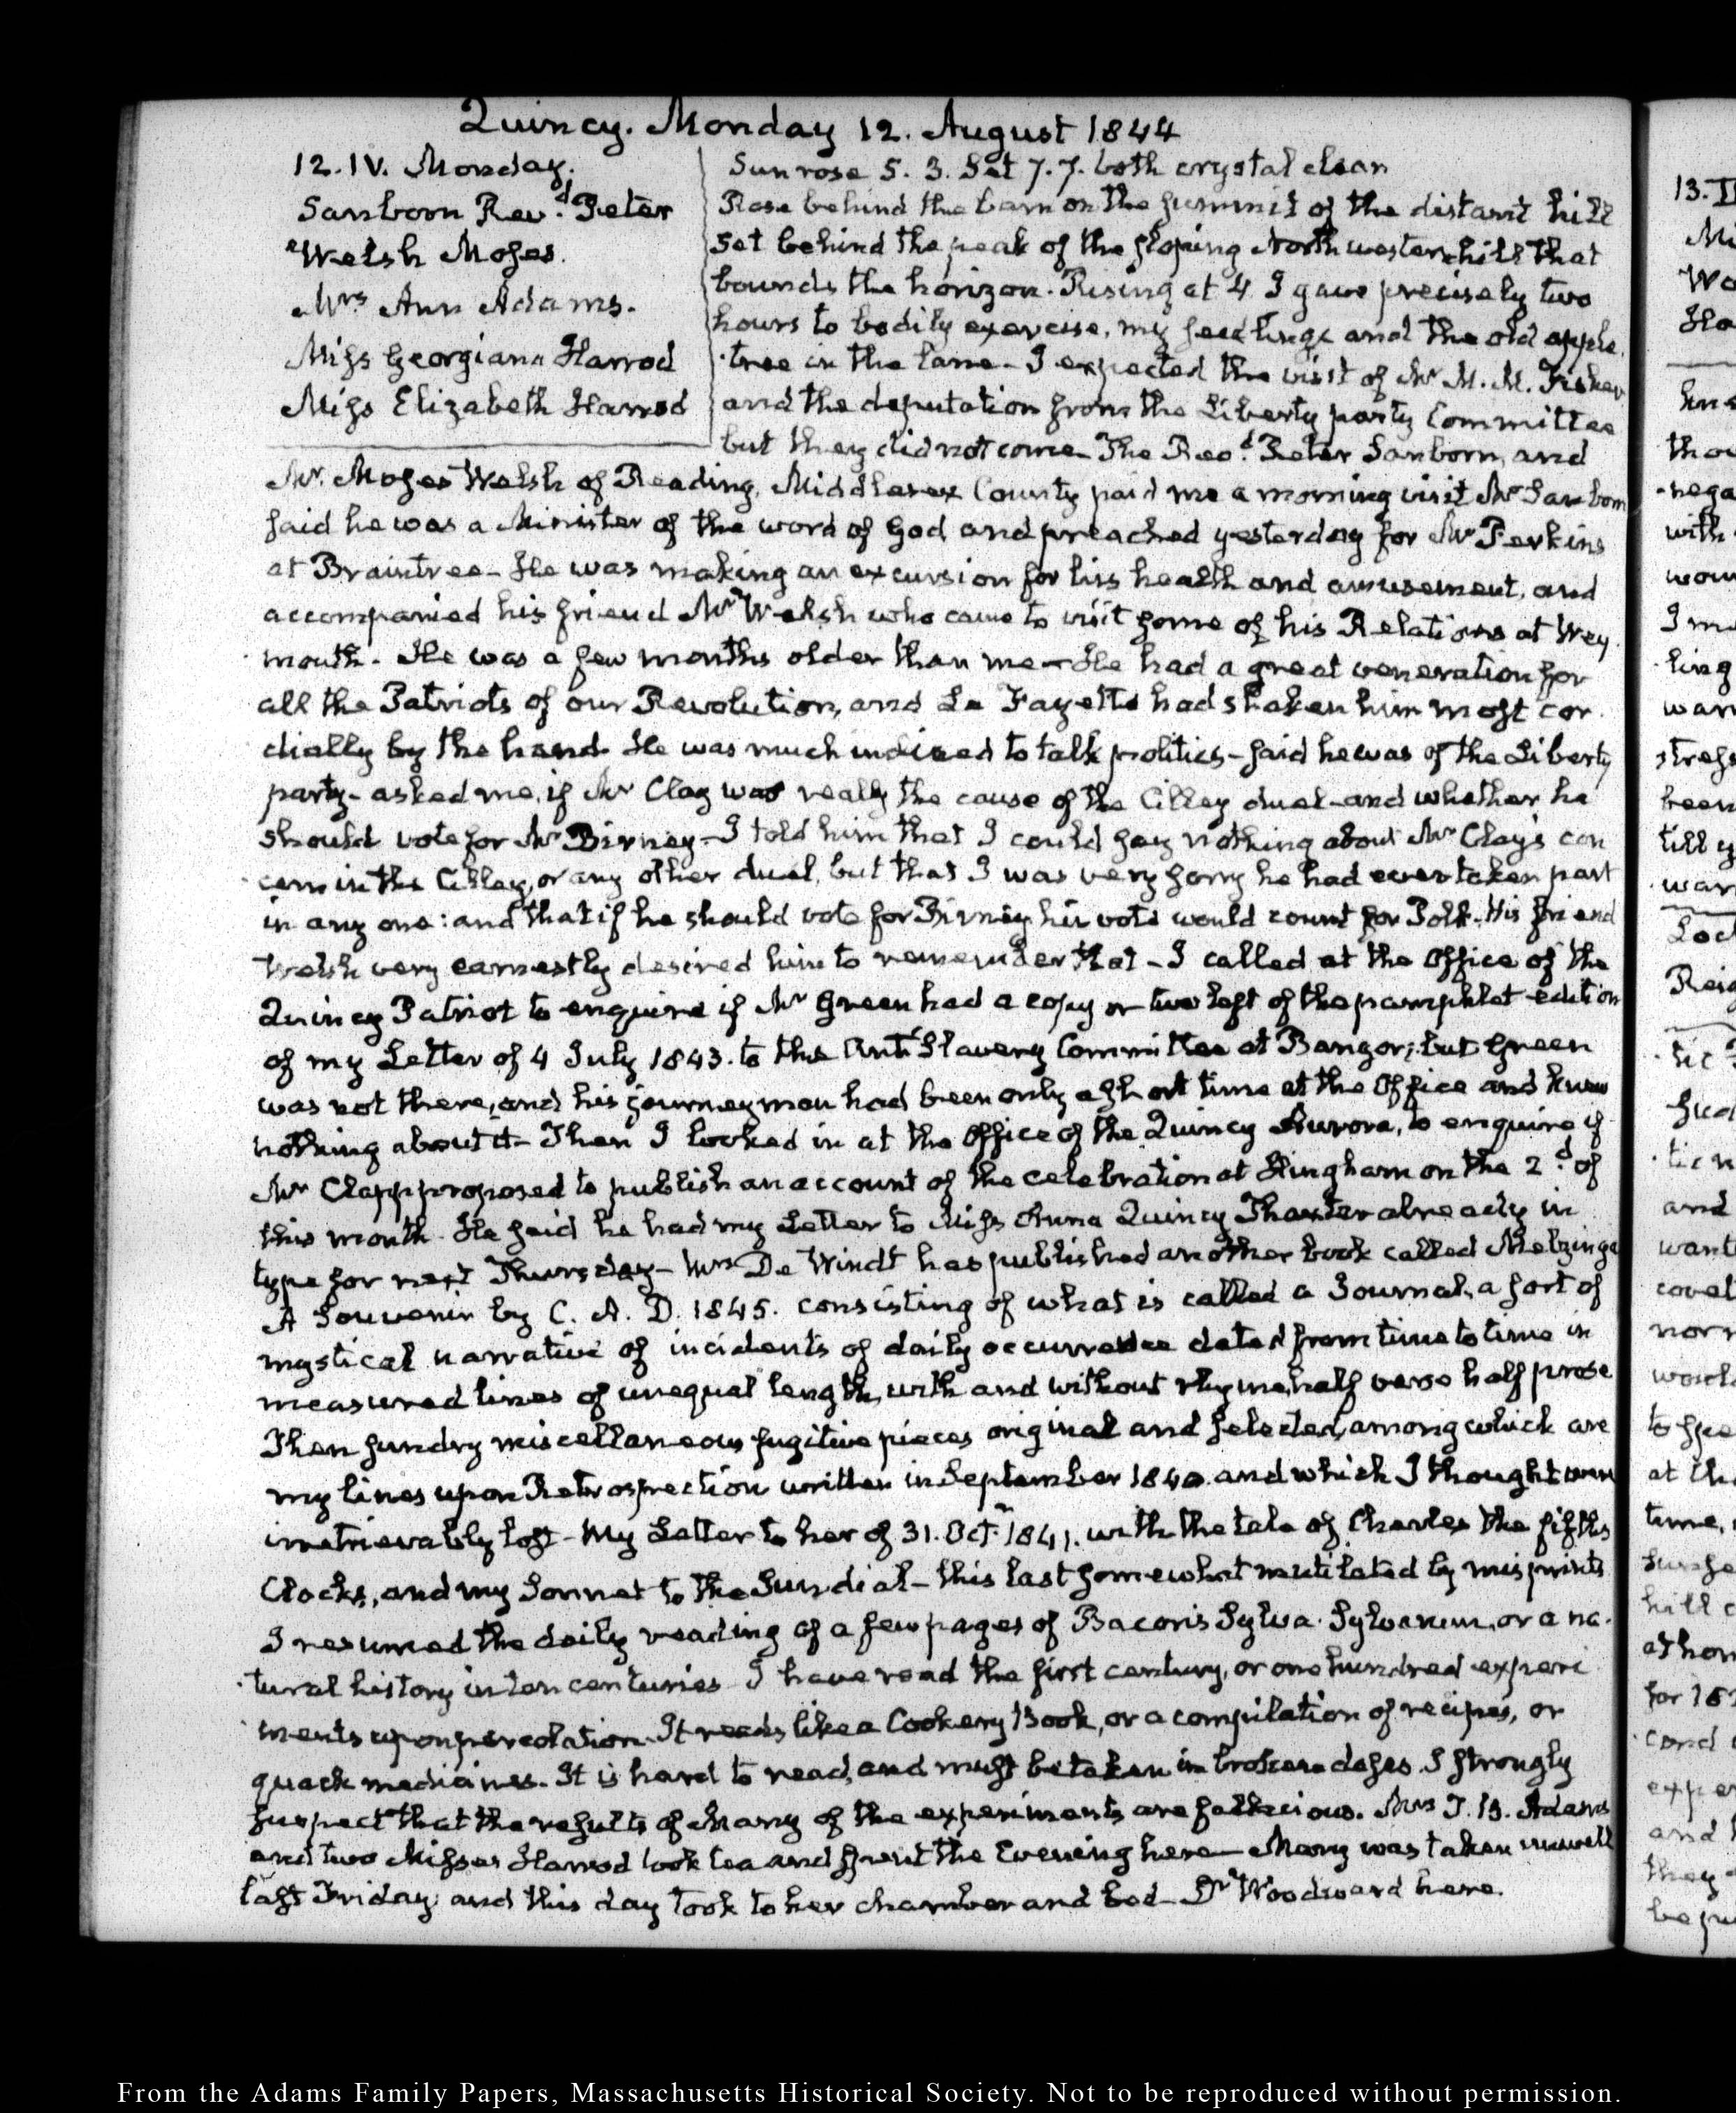 Quincy. Monday 12. August 1844
12. IV. Monday.
Sanborn Rev.d Peter
Welsh Moses.
Mrs Ann Adams.
Miss Georgiana Harrod
Miss Elizabeth Harrod
Sun rose 5. 3. Set 7. 7. both crystal clear
Rose behind the barn on the summit of the distant hill
set behind the peak of the sloping North western hill that
bounds the horizon. Rising at 4 I gave precisely two
hours to bodily exercise, my seedlings and the old apple
tree in the lane - I expected the visit of Mr M. M. Fisher
and the deputation from the Liberty party Committee
but they did not come. The Rev.d Peter Sanborn, and
Mr. Moses Welsh of Reading, Middlesex County paid me a morning visit Mr Sanborn
said he was a Minister of the word of God and preached yesterday for Mr Perkins
at Braintree - He was making an excursion for his health and amusement, and
accompanied his friend Mr Welsh who came to visit some of his Relations at Wey
mouth. He was a few months older than me - He had a great veneration for
all the Patriots of our Revolution, and La Fayette had shaken him most cor
dially by the hand. He was much inclined to talk politics - said he was of the Liberty
party - asked me, if Mr Clay was really the cause of the Cilley duel - and whether he
should vote for Mr Birney - I told him that I could say nothing about Mr Clay's con
cern in the Cilley, or any other duel, but that I was very sorry he had ever taken part
in any one: and that if he should vote for Birney his vote would count for Polk. His friend
Welsh very earnestly desired him to remember that - I called at the Office of the
Quincy Patriot to enquire if Mr Green had a copy or two left of the pamphlet edition
of my Letter of 4 July 1843. to the Anti Slavery Committee at Bangor; but Green
was not there, and his journeyman had been only a short time at the Office and knew
nothing about it - Then I looked in at the Office of the Quincy Aurora, to enquire if
Mr Clapp proposed to publish an account of the celebration at Hingham on the 2.d of
this month. He said he had my Letter to Miss Anna Quincy Thaxter already in
type for next Thursday - Mrs De Windt has published another book called Melzinga
A Souvenir by C. A. D. 1845. consisting of what is called a Journal, a sort of
mystical narrative of incidents of daily occurrence dated from time to time in
measured lines of unequal length, with and without rhyme, half verse half prose
Then sundry miscellaneous fugitive pieces original and selected, among which are
my lines upon Retrospection written in September 1840. and which I thought were
irretrievably lost - My Letter to her of 31. Oct.r 1841. with the tale of Charles the fifths
Clocks, and my Sonnet to the Sun dial - this last somewhat mutilated by misprints
I resumed the daily reading of a few pages of Bacon's Sylva Sylvarum, or a na
tural history in ten centuries I have read the first century, or one hundred experi
ments upon percolation. It reads like a Cookery Book, or a compilation of recipes, or
quack medicines. It is hard to read, and must be taken in broken doses. I strongly
suspect that the results of Many of the experiments are fallacious. Mrs T. B. Adams
and two Misses Harrod took tea and spent the Evening here - Mary was taken unwell
last Friday and this day took to her chamber and bed - Dr Woodward here.
From the Adams Family Papers, Massachusetts Historical Society. Not to be reproduced without permission.